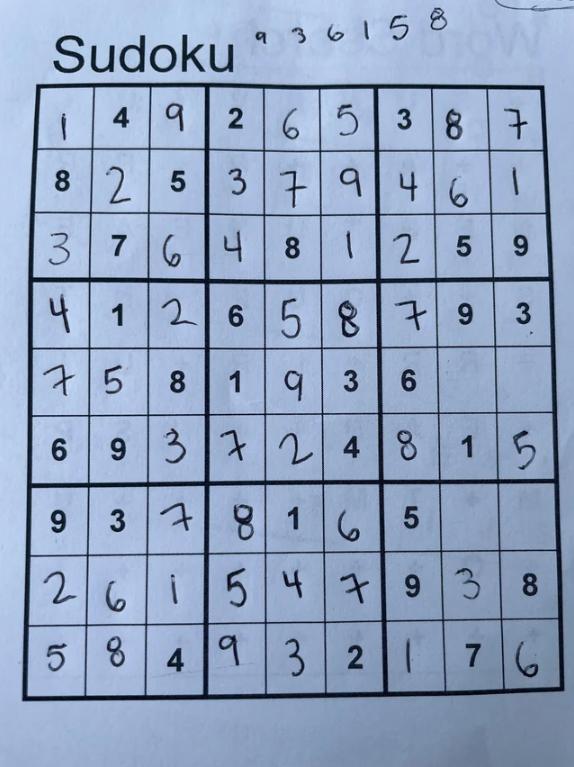 9 3 6 1 5 8
Sudoku
1 4 9 2 6 5 3 8 7
8 2 5 3 7 9 4 6 1
3 7 6 4 8 1 2 5 9
4 1 2 6 5 8 7 9 3
7 5 8 1 9 3 6
6 9 3 7 2 4 8 1 5
9 3 7 8 1 6 5
2 6 1 5 4 7 9 3 8
5 8 4 9 3 2 1 7 6